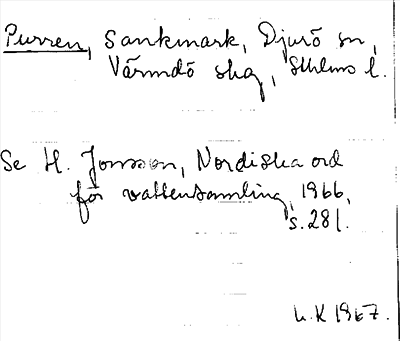 Purren, sankmark, Djurö sn,
Värmdö skg, Sthlms l.
Se H. Jonsson, Nordiska ord
för vattensamling, 1966,
s. 281.
L.K 1967.